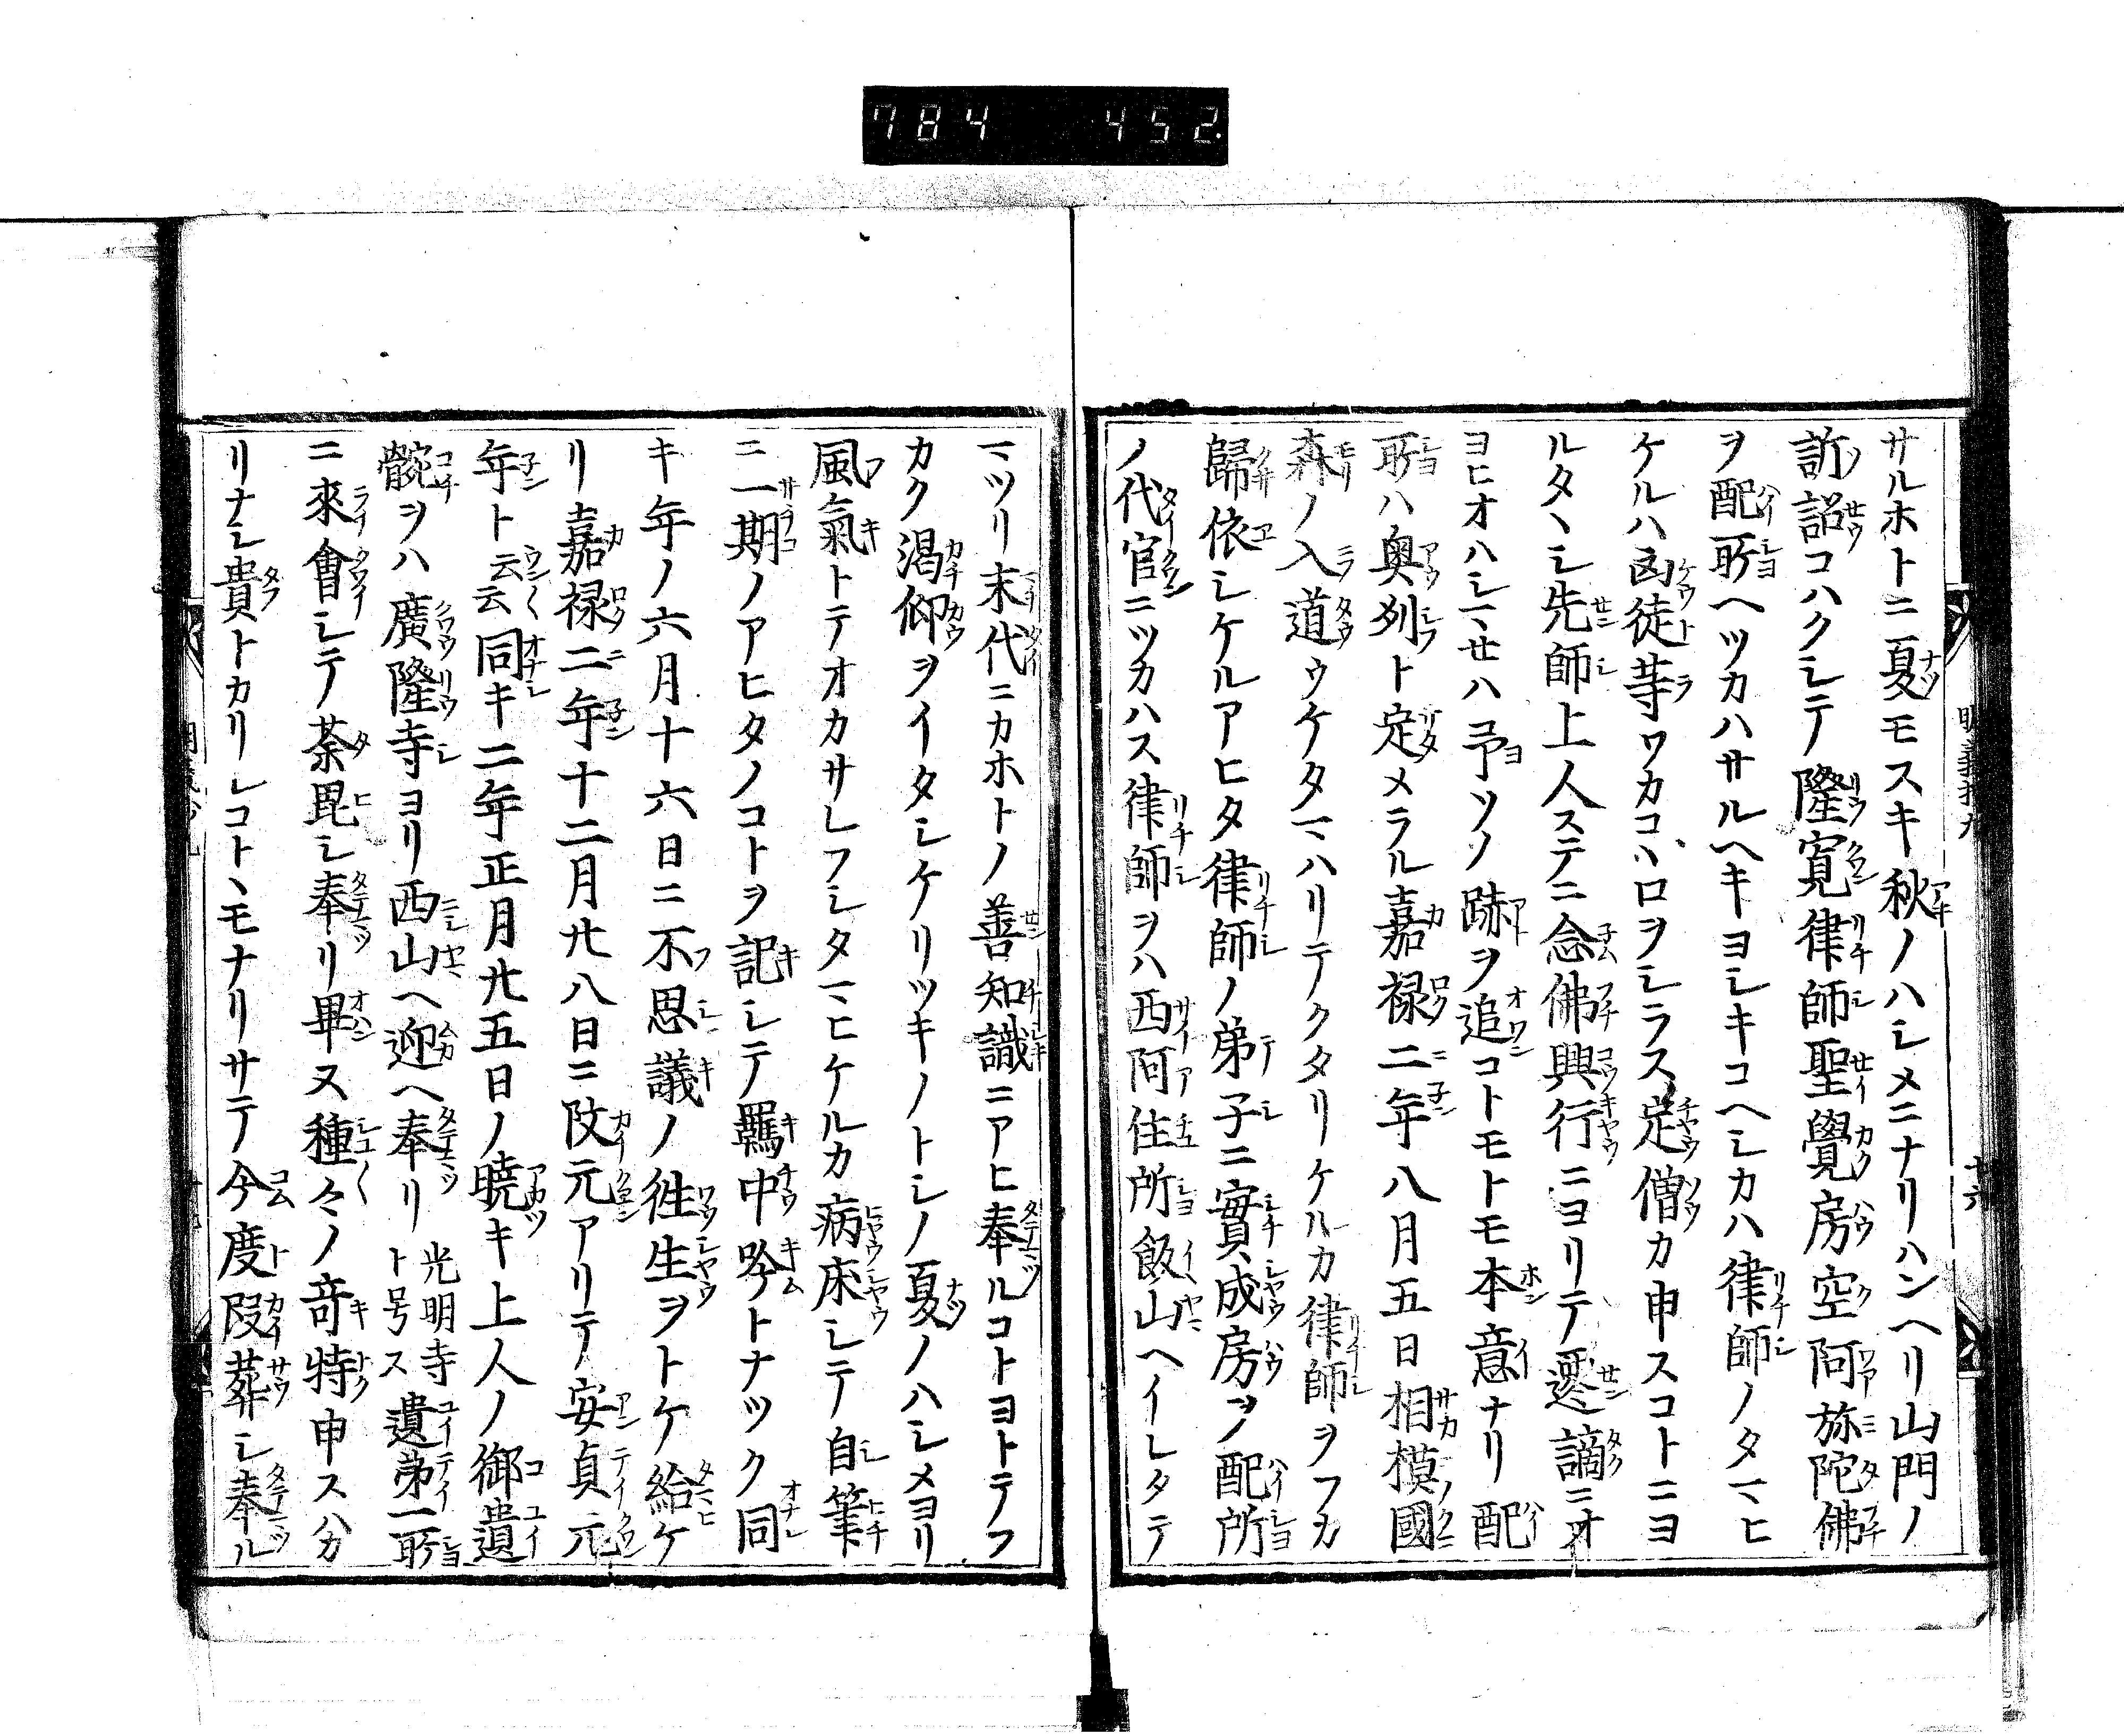 784 452.
サルホトニ夏モスキ秋ノハシメニナリハンヘリ山門ノ
訴詔コハクシテ隆寛律師聖覺房空阿旀陀佛
ヲ配所ヘツカハサルヘキヨシキコヘシカハ律師ノタマヒ
ケルハ凶徒等ワカコヽロヲシラス定僧カ申スコトニヨ
ルタヽシ先師上人ステニ念佛興行ニヨリテ遷謫ニオ
ヨヒオハシマセハ予ソノ跡ヲ追コトモトモ本意ナリ配
所ハ奥列ト定メラル嘉禄二年八月五日相摸國
森ノ入道ウケタマハリテクタリケルカ律師ヲフカ
歸依シケルアヒタ律師ノ弟子ニ實成房ヲノ配所
ノ代官ニツカハス律師ヲハ西阿住所飯山ヘイレタテ
マツリ末代ニカホトノ善知識ニアヒ奉ルコトヨトテフ
カク渇仰ヲイタシケリツキノトシノ夏ノハシメヨリ
風氣トテオカサレフシタマヒケルカ病床シテ自筆
ニ一期ノアヒタノコトヲ記シテ羈中吟トナツク同
キ年ノ六月十六日ニ不思議ノ徃生ヲトケ給ケ
リ嘉禄二年十二月廿八日ニ改元アリテ安貞元
年ト云云同キ二年正月廿五日ノ暁キ上人ノ御遺
骸ヲハ廣隆寺ヨリ西山ヘ迎ヘ奉リ光明寺ト号ス遺弟一所
ニ來會シテ荼毘シ奉リ畢ヌ種々ノ竒特申スハカ
リナシ貴トカリシコトヽモナリサテ今度改葬シ奉ル